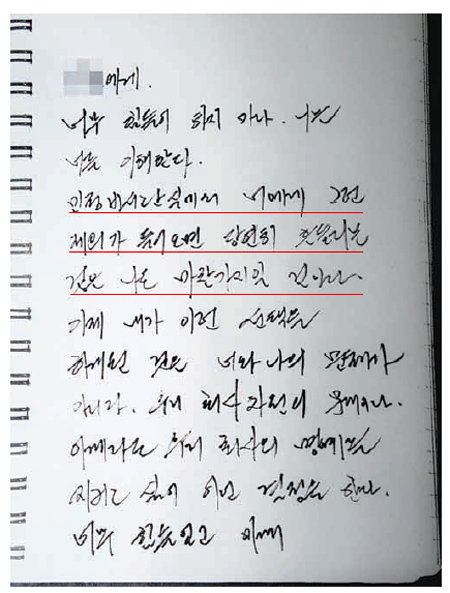 에게.
너무 힘들어 하지 마라. 나는
너를 이해한다.
민정비서관실에서 너에게 그런
제의가 들어오면 당연히 흔들리는
것은 나도 마찬가지일 것이다.
이제 내가 이런 선택을
하게 된 것은 너와 나의 문제가
아니다. 우리 회사 차원의 문제이다.
이제라도 우리 회사의 명예를
지키고 싶어 이런 결정을 한다.
너무 힘들었고 이제